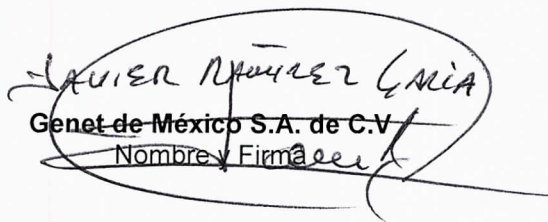 JAVIER RAMIREZ GARCIA
Genet de México S.A. de C.V
Nombre y Firma